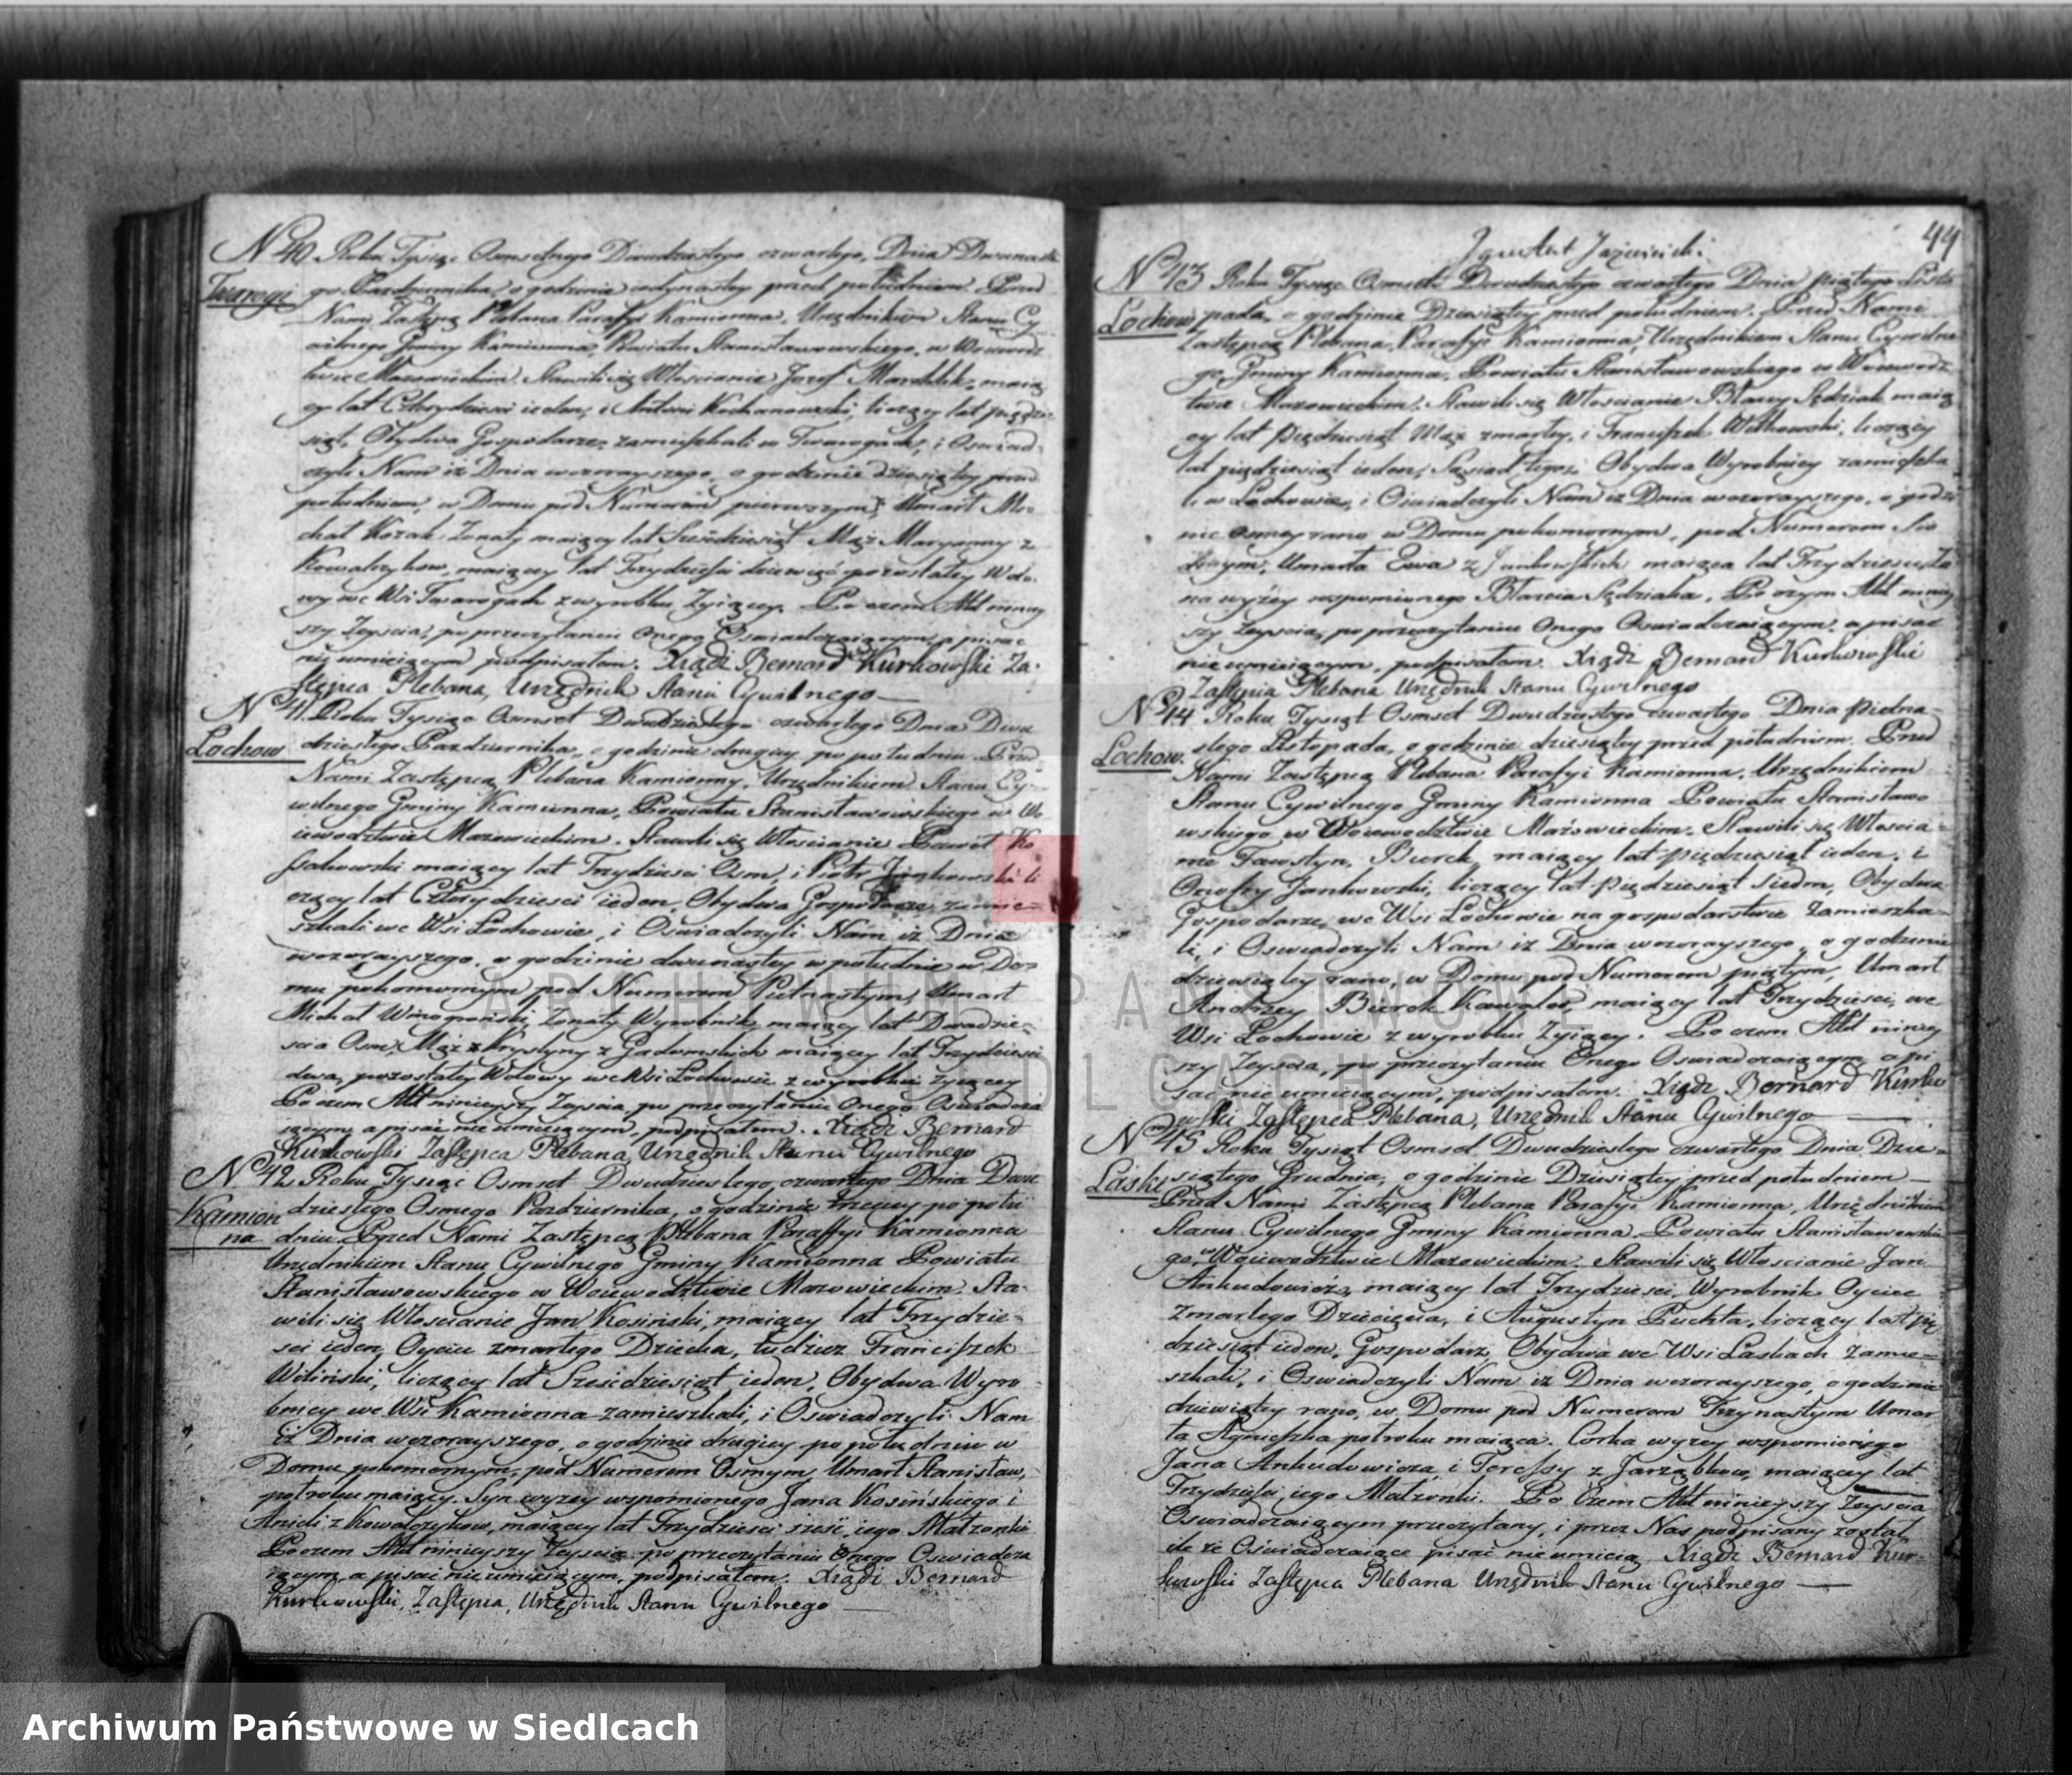 N 40. Roku Tysiąc Osmsetnego Dwudziestego czwartego, Dnia Dwunaste
Twarogi go Pazdziernika, o godzinie iedynastey przed południem. Przed
Nami Zastępcą Plebana Parafyi Kamionna, Urzędnikiem Stanu Cy-
wilnego Gminy Kamionna, Powiatu Stanisławowskiego, w Wojewodz
twie Mazowieckim. Stawili się Włoscianie Jozef maią
cy lat Czterydziesci ieden, i Antoni Kochanowski, liczący lat pięćdzie
siąt, Obydwa Gospodarze, zamieszkali w Twarogach, i Oswiad-
czyli Nam iz Dnia wczorayszego, o godzinie dziesiątey przed
południem, w Domu pod Numerem pierwszym, Umarł Mi-
chał Kozak Zonaty maiący lat Sześćdziesiąt Mąż Maryanny z
Kowalczykow, maiącey lat Trzydziesci dziewięć pozostałey Wdo-
wy we Wsi Twarogach z wyrobku Zyiącey. Po czem Akt niniey
szy Zeyscia, po przeczytaniu Onego Oswiadczaiącym, a pisac
nie umieiącym podpisałem. Xiądz Bernard Kurkowski Za-
stępca Plebana, Urzędnik Stanu Cywilnego —
N 41. Roku Tysiąc Osmset Dwudziestego czwartego Dnia Dwu
Łochow dziestego Pazdziernika, o godzinie drugiey po południu. Przed
Nami Zastępcą Plebana Kamionny, Urzędnikiem Stanu Cy-
wilnego Gminy Kamionna, Powiatu Stanisławowskiego w Wo
iewodztwie Mazowieckim. Stawili się Włoscianie Paweł Ko
ssakowski maiący lat Trzydziesci Osm, i Piotr Jankowski li
czący lat Czterydziesci ieden, Obydwa Gospodarze zamie-
szkali we Wsi Łochowie, i Oswiadczyli Nam iz Dnia
wczorayszego, o godzinie dwunastey w południe w Do-
mu pokomornym pod Numerem Pietnastym, Umarł
Michał Zonaty Wyrobnik, maiący lat Dwadzie-
scia Osm, Mąż Krystyny z Gadomskich maiącey lat Trzydziesci
dwa, pozostałey Wdowy we Wsi Łochowie z wyrobku zyiącey
Po czem Akt ninieyszy Zeyscia po przeczytaniu Onego Oswiadcza
iącym, a pisac nie umieiącym, podpisałem. Xiądz Bernard
Kurkowski Zastępca Plebana, Urzędnik Stanu Cywilnego
N 42 Roku Tysiąc Osmset Dwudziestego czwartego Dnia Dwu
Kamion dziestego Osmego Pazdziernika, o godzinie trzeciey po połu
na dniu. Przed Nami Zastępcą Plebana Parafyi Kamionna
Urzędnikiem Stanu Cywilnego Gminy Kamionna Powiatu
Stanisławowskiego w Woiewodztwie Mazowieckim. Sta-
wili się Włoscianie Jan Kosiński, maiący lat Trzydzie-
sci ieden, Oyciec zmarłego Dziecka, tudziez Franciszek
Wiliński, liczący lat Szescdziesiąt ieden, Obydwa Wyro
bnicy we Wsi Kamionna zamieszkali, i Oswiadczyli Nam
iz Dnia wczorayszego, o godzinie drugiey po południu w
Domu pokomornym, pod Numerem Osmym, Umarł Stanisław,
poł roku maiący. Syn wyzey wspomionego Jana Kosińskiego i
Anieli z Kowalczykow, maiącey lat Trzydziesci szesć, iego Małzonki
Po czem Akt ninieyszy Zeyscia po przeczytaniu Onego Oswiadcza
iącym, a pisac nie umieiącym, podpisałem. Xiądz Bernard
Kurkowski, Zastępca, Urzędnik Stanu Cywilnego —
44
N 43 Roku Tysiąc Osmset Dwudziestego czwartego Dnia piątego Listo
Łochow pada, o godzinie Dziewiątey przed południem. Przed Nami
Zastępcą Plebana, Parafyi Kamionna, Urzędnikiem Stanu Cywilne
go, Gminy Kamionna, Powiatu Stanisławowskiego w Woiewodz
twie Mazowieckim. Stawili się Włoscianie Błazey Sędziak maią
cy lat Pięćdziesiąt Mąż zmarłey, i Franciszek Witkowski, liczący
lat pięćdziesiąt ieden, Sąsiad tegoz, Obydwa Wyrobnicy zamieszka
li w Łochowie, i Oswiadczyli Nam iz Dnia wczorayszego, o godzi
nie osmey rano w Domu pokomornym, pod Numerem Sio
dmym, Umarła Ewa z Jankowskich maiąca lat Trzydziesci, Zo
na wyżey wspomionego Błazeia Sędziaka. Po czym Akt niniey
szy Zeyscia, po przeczytaniu Onego Oswiadczaiącym, a pisac
nie umieiącym, podpisałem. Xiądz Bernard Kurkowski
Zastępca Plebana Urzędnik Stanu Cywilnego
N 44 Roku Tysiąt Osmset Dwudziestego czwartego Dnia Pietna-
Łochow. stego Listopada, o godzinie dziesiątey przed południem. Przed
Nami Zastępcą Plebana Parafyi Kamionna, Urzędnikiem
Stanu Cywilnego Gminy Kamionna Powiatu Stanisławo
wskiego w Woiewodztwie Mazowieckim. Stawili się Włoscia-
nie Fawstyn Bierek, maiący lat pięćdziesiąt ieden, i
Onofry Jankowski, liczący lat pięćdziesiąt siedm, Obydwa
Gospodarze, we Wsi Łochowie na gospodarstwie zamieszka-
li, i Oswiadczyli Nam iz Dnia wczorayszego, o godzinie
dziewiątey rano, w Domu pod Numerem piątym, Umarł
Andrzey Bierek Kawaler, maiący lat Trzydziesci, we
Wsi Łochowie z wyrobku Zyiący. Po czem Akt niniey
szy Zeyscia, po przeczytaniu Onego Oswiadczaiącym, a pi
sac nie umieiącym, podpisałem. Xiądz Bernard Kurko
wski Zastępca Plebana, Urzędnik Stanu Cywilnego —
N 45 Roku Tysiąt Osmset Dwudziestego czwartego Dnia Dzie-
Laski siątego Grudnia, o godzinie Dziesiątey przed południem —
Przed Nami Zastępcą Plebana Parafyi Kamionna, Urzędnikiem
Stanu Cywilnego Gminy Kamionna Powiatu Stanisławowskie
go, w Woiewodztwie Mazowieckim. Stawili się Włoscianie Jan
Ankudowicz, maiący lat Trzydziesci, Wyrobnik Oyciec
Zmarłego Dziecięcia, i Augustyn Puchta, liczący lat pię
dziesiąt ieden, Gospodarz, Obydwa we Wsi Laskach zamie-
szkali, i Oswiadczyli Nam iz Dnia wczorayszego, o godzinie
dziewiątey rano, w Domu pod Numerem Trzynastym Umar
ła Agnieszka poł roku maiąca. Corka wyzey wspomionego
Jana Ankudowicza, i Teressy z Jarząbkow, maiącey lat
Trzydziesci, iego Małzonki. Po czem Akt ninieyszy Zeyscia
Oswiadczaiącym przeczytany, i przez Nas podpisany został,
ile ze Oswiadczaiące pisac nie umieią, Xiądz Bernard Kur-
kowski Zastępca Plebana Urzędnik Stanu Cywilnego —
ARCHIWUM PAŃSTWOWE
W SIEDLCACH
Archiwum Państwowe w Siedlcach